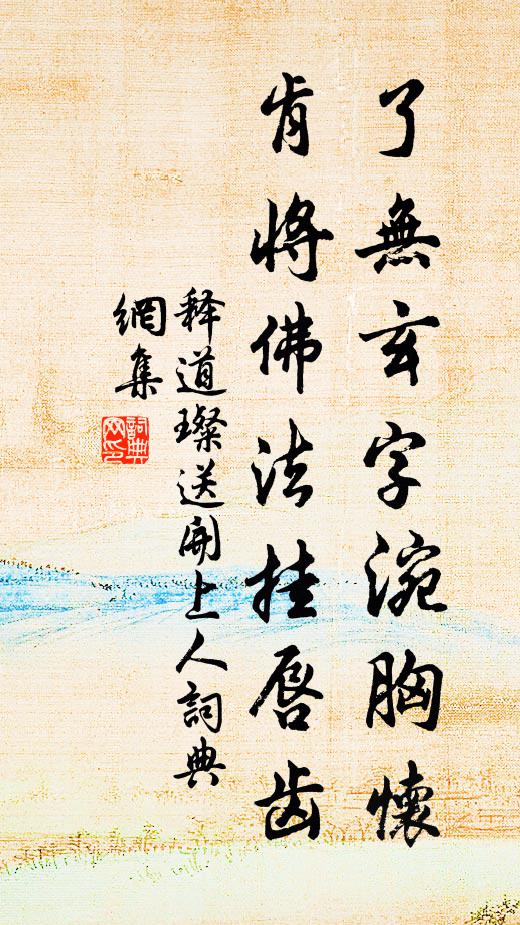 了無玄字涴胸懷
肯將佛法挂唇齒
释道璨送開上人詞典
網集
詞典網印